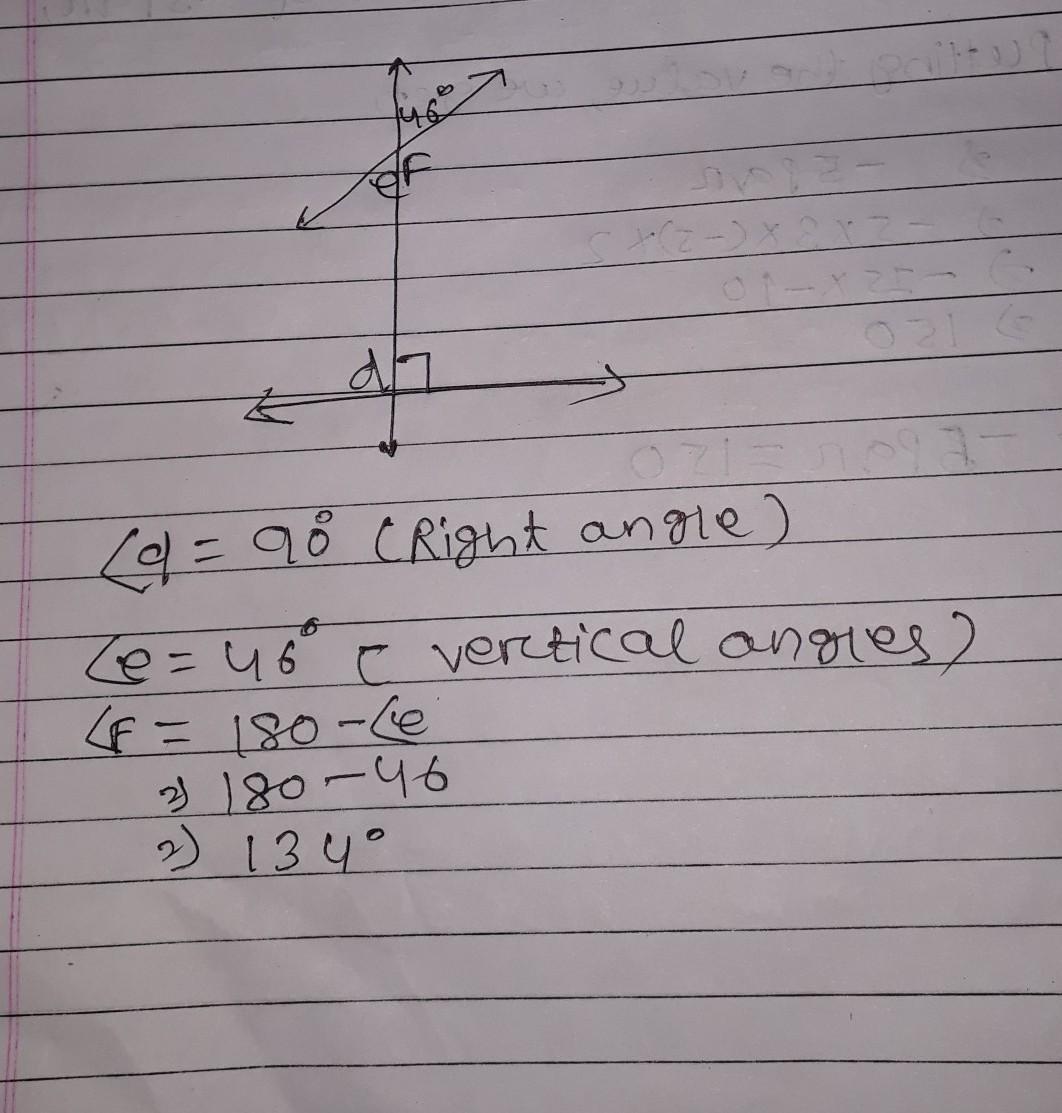 46°
e F
d
∠d = 90° (Right angle)
∠e = 46° ( vertical angles)
∠F = 180 - ∠e
⇒ 180 - 46
⇒ 134°